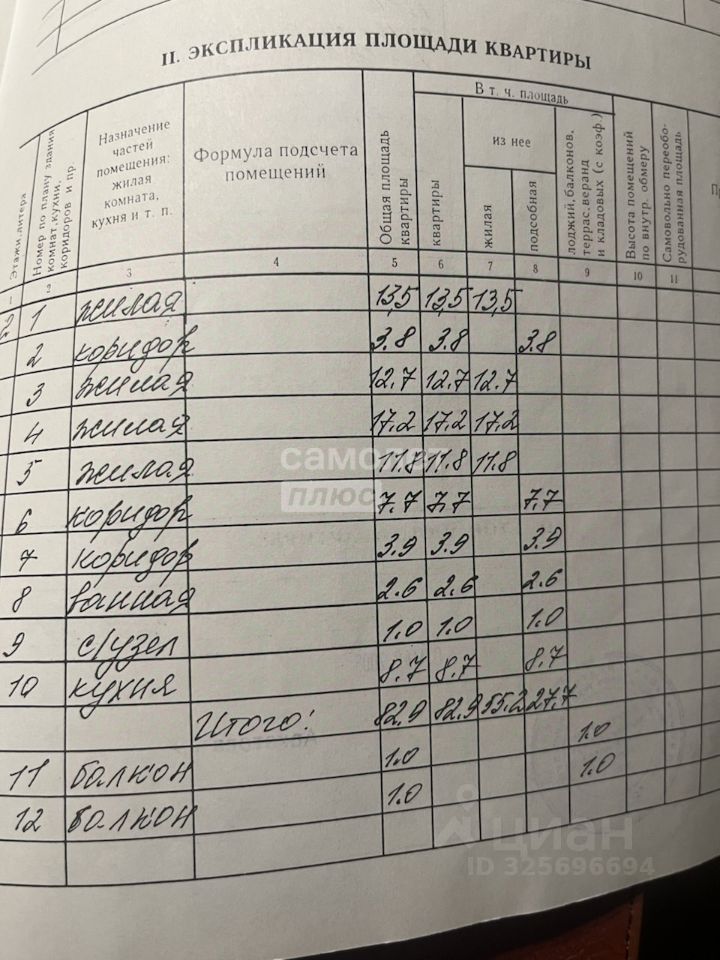 II. ЭКСПЛИКАЦИЯ ПЛОЩАДИ КВАРТИРЫ
Этажи, литера
Номер по плану здания комнат, кухни, коридоров и пр.
Назначение частей помещения: жилая комната, кухня и т. п.
Формула подсчета помещений
Общая площадь квартиры
В т. ч. площадь
квартиры
из нее
жилая
подсобная
лоджий, балконов, террас, веранд и кладовых (с коэф.)
Высота помещений по внутр. обмеру
Самовольно переобо- рудованная площадь
3 4 5 6 7 8 9 10 11
2 1 жилая 13,5 13,5 13,5
2 коридор 3.8 3.8 3.8
3 жилая 12.7 12.7 12.7
4 жилая 17.2 17.2 17.2
5 жилая 11.8 11.8 11.8
6 коридор 7.7 7.7 7.7
7 коридор 3.9 3.9 3.9
8 ванная 2.6 2.6 2.6
9 с/узел 1.0 1.0 1.0
10 кухня 8.7 8.7 8.7
Итого: 82.9 82.9 55.2 27.7
11 балкон 1.0 1.0
12 балкон 1.0 1.0
самолет
плюс
циан
ID 325696694